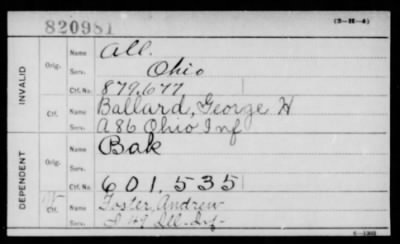 820981
(3-H-4)
Name All.
Orig. Serv. Ohio
INVALID
Ctf. No. 879,677
Name Ballard, George W
Ctf. Serv. A 86 Ohio Inf
Name Bak
Orig. Serv.
DEPENDENT
Ctf. No. 601,535
Name Foster, Andrew
Ctf. Serv. I 49 Ill. Inf-